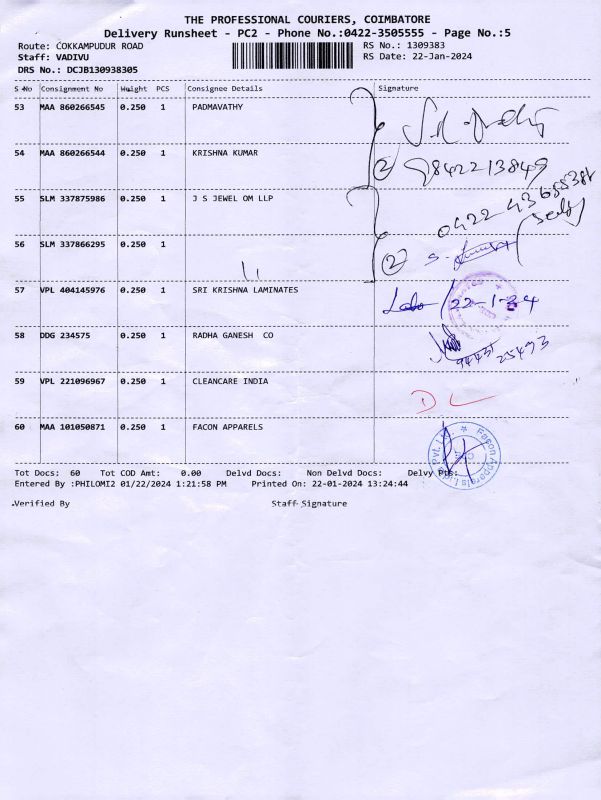 THE PROFESSIONAL COURIERS, COIMBATORE
Delivery Runsheet - PC2 - Phone No.:0422-3505555 - Page No.:5
Route: COKKAMPUDUR ROAD RS No.: 1309383
Staff: VADIVU RS Date: 22-Jan-2024
DRS No.: DCJB130938305
S No Consignment No Weight PCS Consignee Details Signature
53 MAA 860266545 0.250 1 PADMAVATHY
54 MAA 860266544 0.250 1 KRISHNA KUMAR ② 9842213849
55 SLM 337875986 0.250 1 J S JEWEL OM LLP 0422 4368538
56 SLM 337866295 0.250 1 ② S.
57 VPL 404145976 0.250 1 SRI KRISHNA LAMINATES 22-1-24
58 DDG 234575 0.250 1 RADHA GANESH CO 94431 25493
59 VPL 221096967 0.250 1 CLEANCARE INDIA DL
60 MAA 101050871 0.250 1 FACON APPARELS Facon Apparels Pvt. Ltd.
Tot Docs: 60 Tot COD Amt: 0.00 Delvd Docs: Non Delvd Docs: Delvy Pts:
Entered By :PHILOMI2 01/22/2024 1:21:58 PM Printed On: 22-01-2024 13:24:44
Verified By Staff Signature